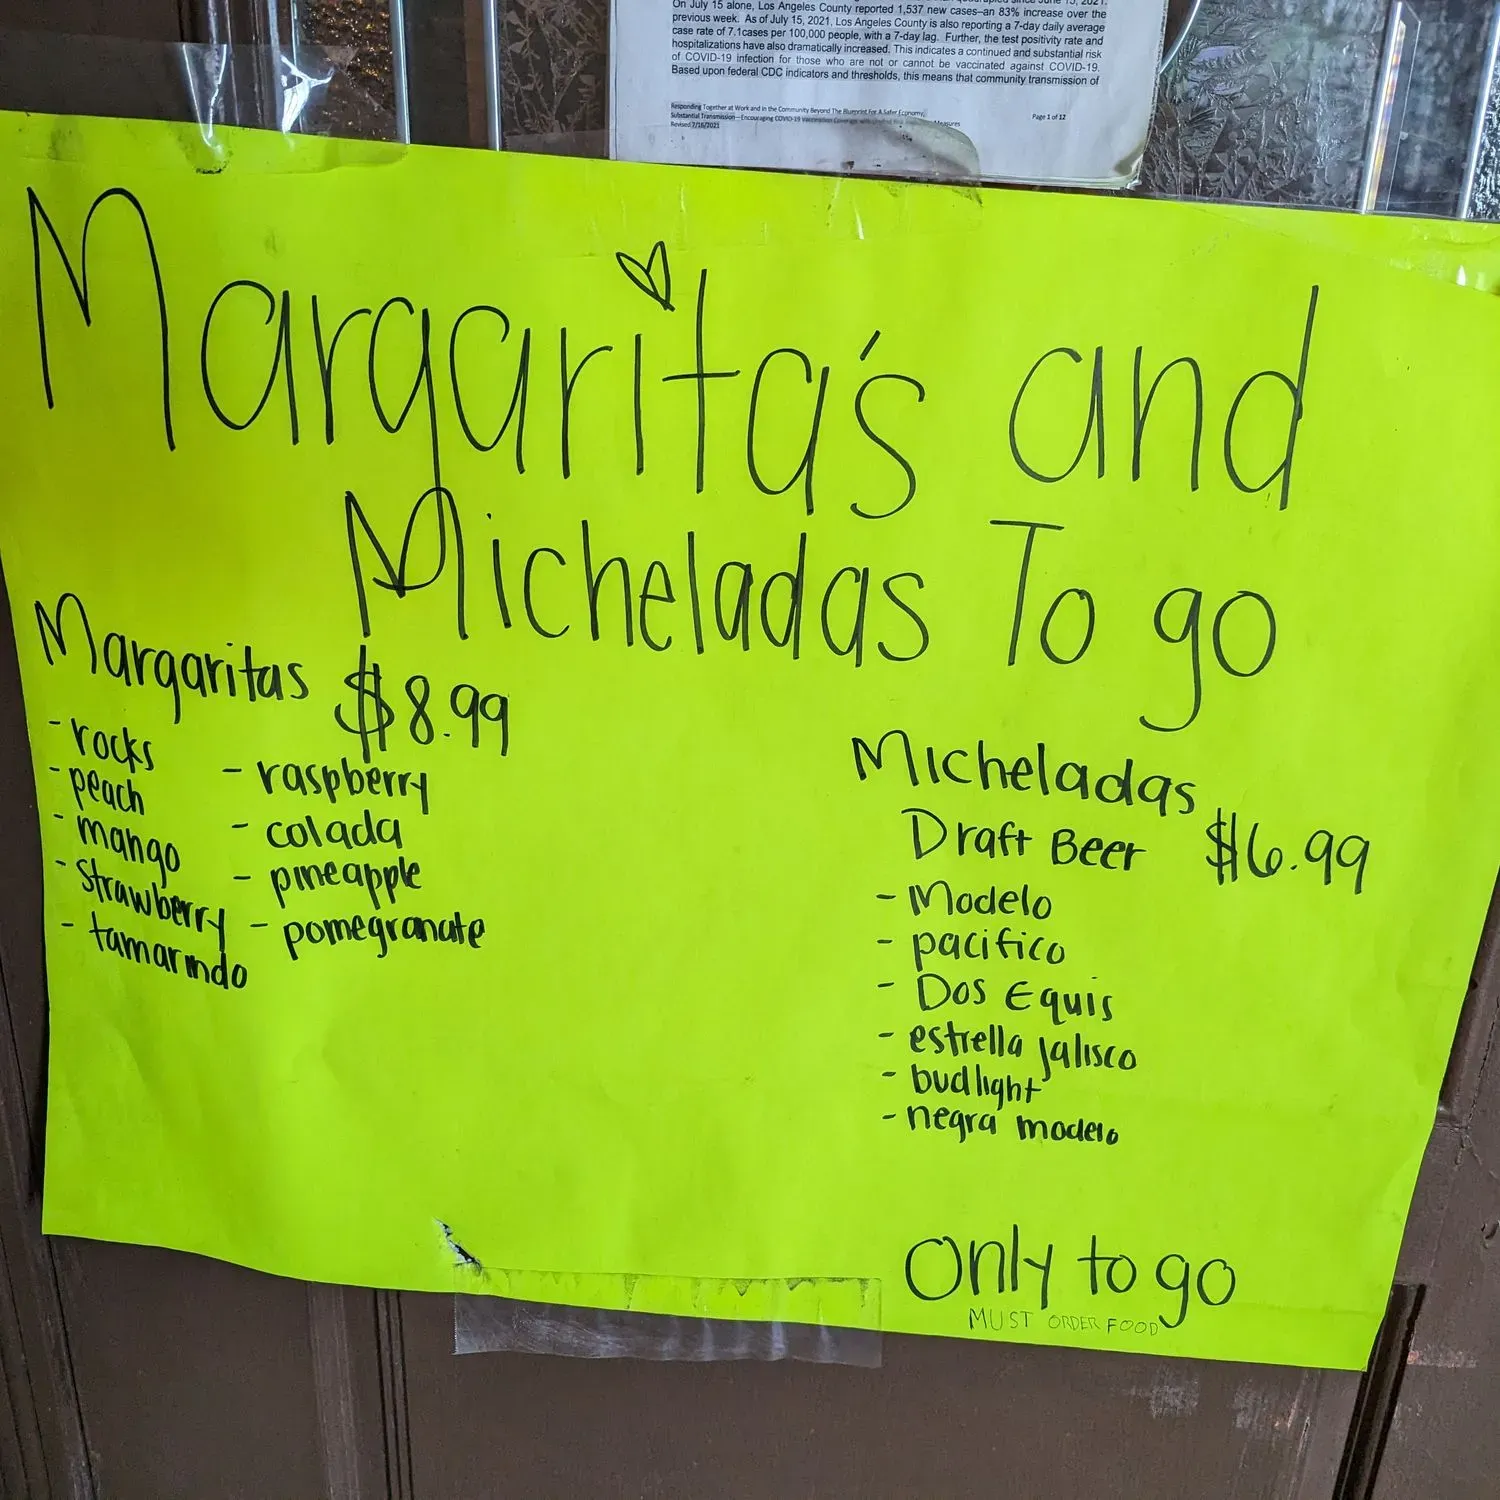 On July 15 alone, Los Angeles County reported 1,537 new cases–an 83% increase over the
previous week. As of July 15, 2021, Los Angeles County is also reporting a 7-day daily average
case rate of 7.1cases per 100,000 people, with a 7-day lag. Further, the test positivity rate and
hospitalizations have also dramatically increased. This indicates a continued and substantial risk
of COVID-19 infection for those who are not or cannot be vaccinated against COVID-19.
Based upon federal CDC indicators and thresholds, this means that community transmission of
Responding Together at Work and in the Community Beyond The Blueprint For A Safer Economy,
Substantial Transmission—Encouraging COVID-19 Vaccination Coverage with Measures
Revised 7/16/2021
Page 1 of 12
Margarita's and
Micheladas To go
Margaritas $8.99
- rocks
- peach
- mango
- Strawberry
- tamarindo
- raspberry
- colada
- pineapple
- pomegranate
Micheladas
Draft Beer $6.99
- Modelo
- pacifico
- Dos Equis
- estrella jalisco
- bud light
- negra modelo
Only to go
MUST ORDER FOOD